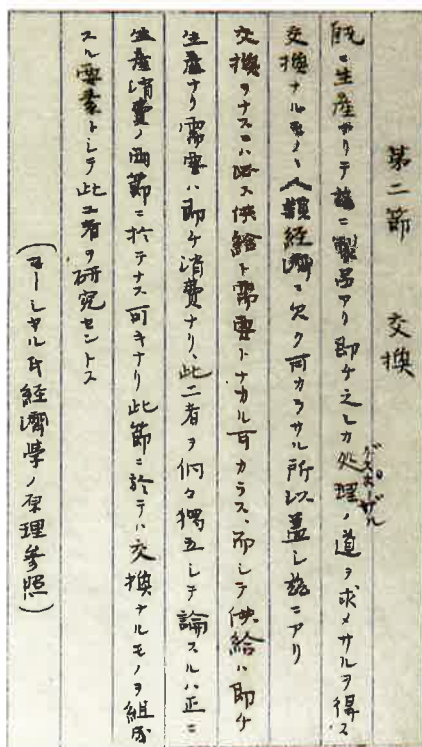 第二節　交換
既ニ生産アリテ茲ニ製品アリ即チ之レカ処理ノ道ヲ求メサルヲ得ス
ヂスポーザル
交換ナルモノヽ人類経済ニ欠ク可カラサル所以蓋し茲ニアリ
交換ヲナスニハ必ス供給ト需要トナカル可カラス、而シテ供給ハ即チ
生産ナリ需要ハ即チ消費ナリ、此二者ヲ個々独立シテ論スルハ正ニ
生産消費ノ両節ニ於テナス可キナリ此節ニ於テハ交換ナルモノヲ組成
スル要素トシテ此二者ヲ研究セントス
（マーシャル氏経済学ノ原理参照）